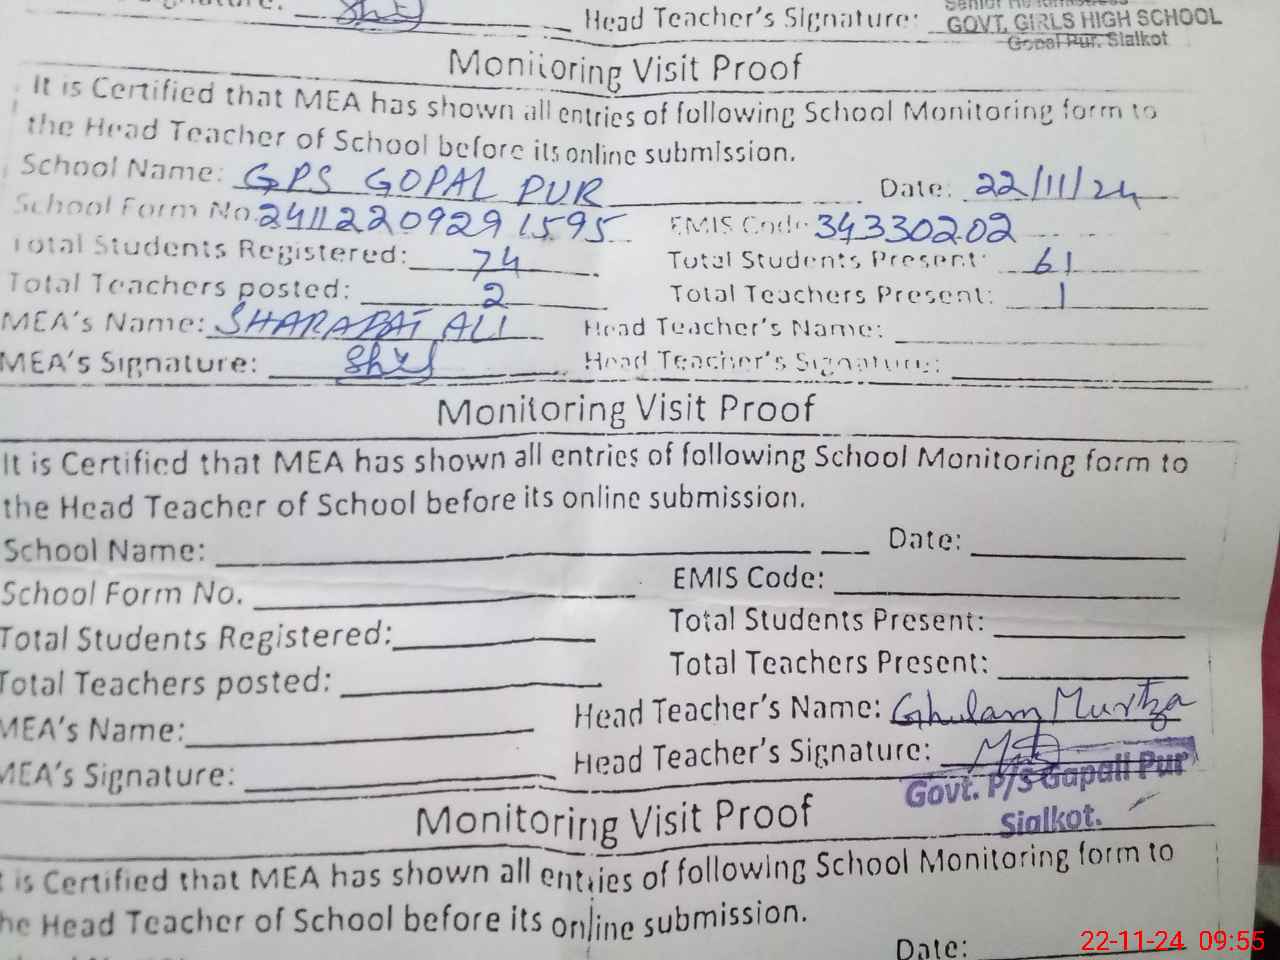 Head Teacher's Signature:
GOVT. GIRLS HIGH SCHOOL
Gopal Pur. Sialkot
Monitoring Visit Proof
It is Certified that MEA has shown all entries of following School Monitoring form to
the Head Teacher of School before its online submission.
School Name: GPS GOPAL PUR Date: 22/11/24
School Form No. 2411220929 1595 EMIS Code 34330202
Total Students Registered: 74 Total Students Present: 61
Total Teachers posted: 2 Total Teachers Present: 1
MEA's Name: SHARAFAT ALI Head Teacher's Name:
MEA's Signature: Head Teacher's Signature:
Monitoring Visit Proof
It is Certified that MEA has shown all entries of following School Monitoring form to
the Head Teacher of School before its online submission.
School Name: Date:
School Form No. EMIS Code:
Total Students Registered: Total Students Present:
Total Teachers posted: Total Teachers Present:
MEA's Name: Head Teacher's Name: Ghulam Murtza
MEA's Signature: Head Teacher's Signature:
Govt. P/S Gapall Pur
Sialkot.
Monitoring Visit Proof
is Certified that MEA has shown all entries of following School Monitoring form to
he Head Teacher of School before its online submission.
Date:
22-11-24 09:55